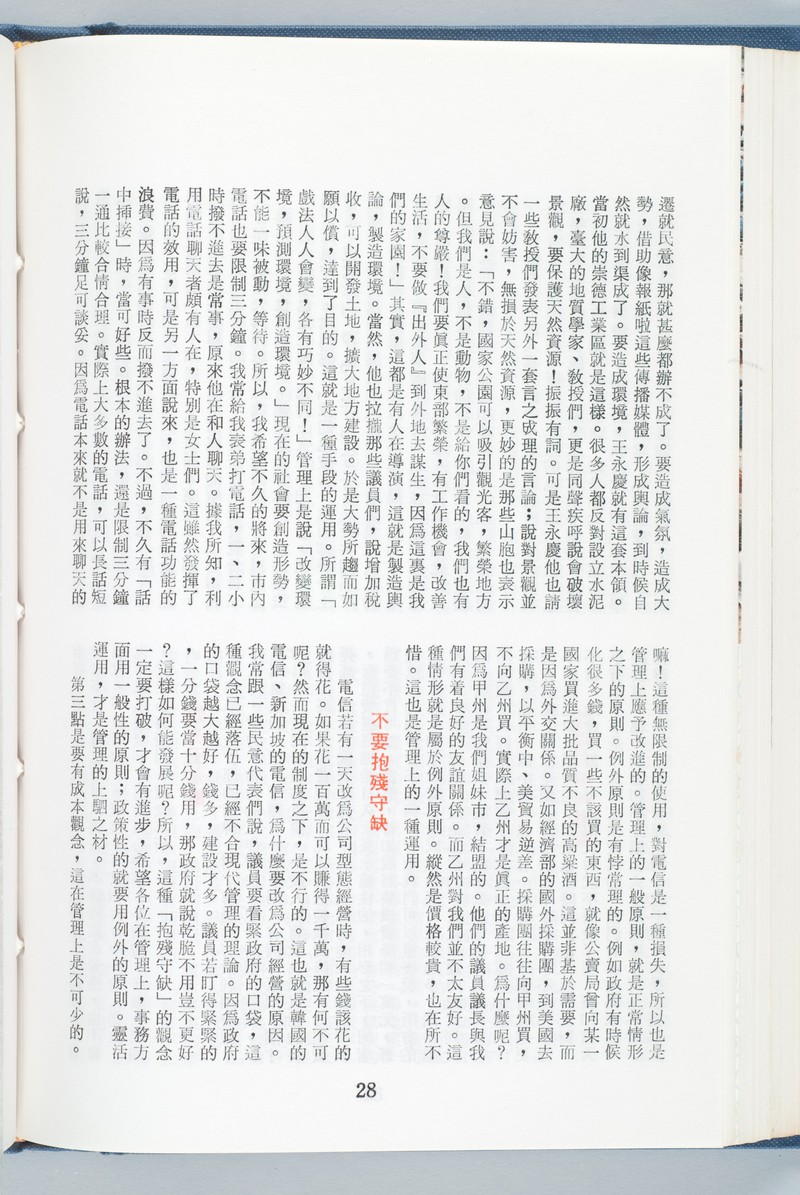 遷就民意，那就甚麼都辦不成了。要造成氣氛，造成大
勢，借助像報紙啦這些傳播媒體，形成輿論，到時候自
然就水到渠成了。要造成環境，王永慶就有這套本領。
當初他的崇德工業區就是這樣。很多人都反對設立水泥
廠，臺大的地質學家、敎授們，更是同聲疾呼說會破壞
景觀，要保護天然資源！振振有詞。可是王永慶他也請
一些敎授們發表另外一套言之成理的言論；說對景觀並
不會妨害，無損於天然資源，更妙的是那些山胞也表示
意見說：「不錯，國家公園可以吸引觀光客，繁榮地方
。但我們是人，不是動物，不是給你們看的，我們也有
人的尊嚴！我們要眞正使東部繁榮，有工作機會，改善
生活，不要做『出外人』到外地去謀生，因爲這裏是我
們的家園！」其實，這都是有人在導演，這就是製造輿
論，製造環境。當然，他也拉攏那些議員們，說增加稅
收，可以開發土地，擴大地方建設。於是大勢所趨而如
願以償，達到了目的。這就是一種手段的運用。所謂「
戲法人人會變，各有巧妙不同！」管理上是說「改變環
境，預測環境，創造環境。」現在的社會要創造形勢，
不能一味被動，等待。所以，我希望不久的將來，市內
電話也要限制三分鐘。我常給我表弟打電話，一、二小
時撥不進去是常事，原來他在和人聊天。據我所知，利
用電話聊天者頗有人在，特別是女士們。這雖然發揮了
電話的效用，可是另一方面說來，也是一種電話功能的
浪費。因爲有事時反而撥不進去了。不過，不久有「話
中挿接」時，當可好些。根本的辦法，還是限制三分鐘
一通比較合情合理。實際上大多數的電話，可以長話短
說，三分鐘足可談妥。因爲電話本來就不是用來聊天的
嘛！這種無限制的使用，對電信是一種損失，所以也是
管理上應予改進的。管理上的一般原則，就是正常情形
之下的原則。例外原則是有悖常理的。例如政府有時候
化很多錢，買一些不該買的東西，就像公賣局曾向某一
國家買進大批品質不良的高粱酒。這並非基於需要，而
是因爲外交關係。又如經濟部的國外採購團，到美國去
採購，以平衡中、美貿易逆差。採購團往往向甲州買，
不向乙州買。實際上乙州才是眞正的產地。爲什麼呢？
因爲甲州是我們姐妹市，結盟的。他們的議員議長與我
們有着良好的友誼關係。而乙州對我們並不太友好。這
種情形就是屬於例外原則。縱然是價格較貴，也在所不
惜。這也是管理上的一種運用。
不要抱殘守缺
電信若有一天改爲公司型態經營時，有些錢該花的
就得花。如果花一百萬而可以賺得一千萬，那有何不可
呢？然而現在的制度之下，是不行的。這也就是韓國的
電信、新加坡的電信，爲什麼要改爲公司經營的原因。
我常跟一些民意代表們說，議員要看緊政府的口袋，這
種觀念已經落伍，已經不合現代管理的理論。因爲政府
的口袋越大越好，錢多，建設才多。議員若盯得緊緊的
，一分錢要當十分錢用，那政府就說乾脆不用豈不更好
？這樣如何能發展呢？所以，這種「抱殘守缺」的觀念
一定要打破，才會有進步，希望各位在管理上，事務方
面用一般性的原則；政策性的就要用例外的原則。靈活
運用，才是管理的上駟之材。
第三點是要有成本觀念，這在管理上是不可少的。
28